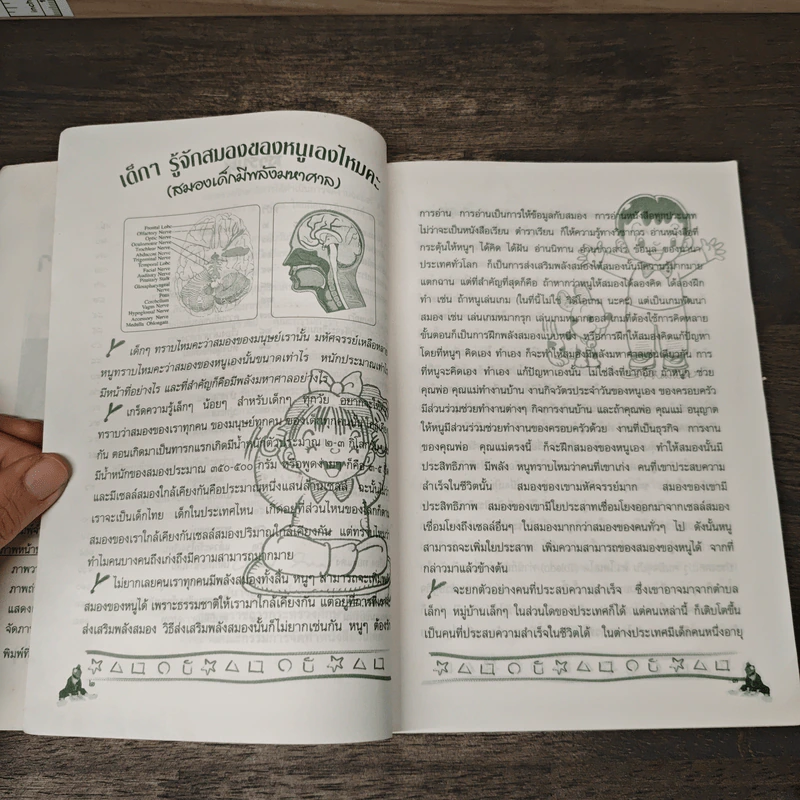 เด็กๆ รู้จักสมองของหนูเองไหมคะ
(สมองเด็กมีพลังมหาศาล)
Frontal Lobe
Olfactory Nerve
Optic Nerve
Oculomotor Nerve
Trochlear Nerve
Abducens Nerve
Trigeminal Nerve
Temporal Lobe
Facial Nerve
Auditory Nerve
Pituitary Stalk
Glossopharyngeal
Nerve
Pons
Cerebellum
Vagus Nerve
Hypoglossal Nerve
Accessory Nerve
Medulla Oblongata
เด็กๆ ทราบไหมคะว่าสมองของมนุษย์เรานั้น มหัศจรรย์เหลือหลาย
หนูทราบไหมคะว่าสมองของหนูเองนั้นขนาดเท่าไร หนักประมาณเท่าไร
มีหน้าที่อย่างไร และที่สำคัญก็คือมีพลังมหาศาลอย่างไร
เกร็ดความรู้เล็กๆ น้อยๆ สำหรับเด็กๆ ทุกวัย
ทราบว่าสมองของเราทุกคน ของมนุษย์ทุกคน ของเด็กทุกคนนั้น
กัน ตอนเกิดมาเป็นทารกแรกเกิดมีน้ำหนักตัวประมาณ ๒-๓ กิโลกรัม
มีน้ำหนักของสมองประมาณ ๓๕๐-๕๐๐ กรัม หรือพูดง่ายๆ ก็คือ
และมีเซลล์สมองใกล้เคียงกันคือประมาณหนึ่งแสนล้านเซลล์ ฉะนั้นไม่ว่า
เราจะเป็นเด็กไทย เด็กในประเทศไหน เกิดอยู่ที่ส่วนไหนของโลกก็ตาม
สมองของเราใกล้เคียงกันเซลล์สมองปริมาณใกล้เคียงกัน แต่ทราบไหมว่า
ทำไมคนบางคนถึงเก่งถึงมีความสามารถมากมาย
ไม่ยากเลยคนเราทุกคนมีพลังสมองทั้งสิ้น หนูๆ สามารถจะเพิ่มพลัง
สมองของหนูได้ เพราะธรรมชาติให้เรามาใกล้เคียงกัน แต่อยู่ที่การที่เราจะ
ส่งเสริมพลังสมอง วิธีส่งเสริมพลังสมองนั้นก็ไม่ยากเช่นกัน หนูๆ ต้อง
๒
การอ่าน การอ่านเป็นการให้ข้อมูลกับสมอง การอ่านหนังสือทุกประเภท
ไม่ว่าจะเป็นหนังสือเรียน ตำราเรียน ก็ให้ความรู้ทางวิชาการ อ่านหนังสือที่
กระตุ้นให้หนูๆ ได้คิด ได้ฝัน อ่านนิทาน อ่านข่าวสาร ข้อมูล ของนานา
ประเทศทั่วโลก ก็เป็นการส่งเสริมพลังสมองให้สมองนั้นมีความรู้มากมาย
แตกฉาน แต่ที่สำคัญที่สุดก็คือ ถ้าหากว่าหนูให้สมองได้ลองคิด ได้ลองฝึก
ทำ เช่น ถ้าหนูเล่นเกม (ในที่นี้ไม่ใช่ วิดีโอเกม นะคะ) แต่เป็นเกมพัฒนา
สมอง เช่น เล่นเกมหมากรุก เล่นเกมหมากฮอส เกมที่ต้องใช้การคิดหลาย
ขั้นตอนก็เป็นการฝึกพลังสมองแบบหนึ่ง หรือการฝึกให้สมองคิดแก้ปัญหา
โดยที่หนูๆ คิดเอง ทำเอง ก็จะทำให้สมองมีพลังมหาศาลเช่นเดียวกัน การ
ที่หนูจะคิดเอง ทำเอง แก้ปัญหาเองนั้น ไม่ใช่สิ่งที่ยากอีก ถ้าหนูๆ ช่วย
คุณพ่อ คุณแม่ทำงานบ้าน งานกิจวัตรประจำวันของหนูเอง ของครอบครัว
มีส่วนร่วมช่วยทำงานต่างๆ กิจการงานบ้าน และถ้าคุณพ่อ คุณแม่ อนุญาต
ให้หนูมีส่วนร่วมช่วยทำงานของครอบครัวด้วย งานที่เป็นธุรกิจ การงาน
ของคุณพ่อ คุณแม่ตรงนี้ ก็จะฝึกสมองของหนูเอง ทำให้สมองนั้นมี
ประสิทธิภาพ มีพลัง หนูทราบไหมว่าคนที่เขาเก่ง คนที่เขาประสบความ
สำเร็จในชีวิตนั้น สมองของเขามหัศจรรย์มาก สมองของเขามี
ประสิทธิภาพ สมองของเขามีใยประสาทเชื่อมโยงออกมาจากเซลล์สมอง
เชื่อมโยงถึงเซลล์อื่นๆ ในสมองมากกว่าสมองของคนทั่วๆ ไป ดังนั้นหนู
สามารถจะเพิ่มใยประสาท เพิ่มความสามารถของสมองของหนูได้ จากที่
กล่าวมาแล้วข้างต้น
จะยกตัวอย่างคนที่ประสบความสำเร็จ ซึ่งเขาอาจมาจากตำบล
เล็กๆ หมู่บ้านเล็กๆ ในส่วนใดของประเทศก็ได้ แต่คนเหล่านี้ ก็เติบโตขึ้น
เป็นคนที่ประสบความสำเร็จในชีวิตได้ ในต่างประเทศมีเด็กคนหนึ่งอายุ